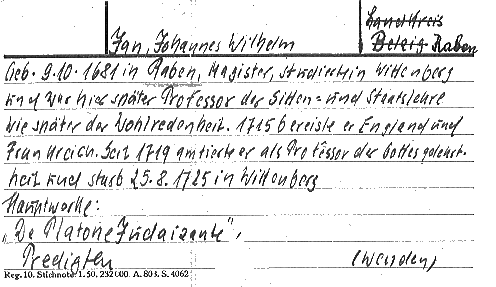 Jan, Johannes Wilhelm
Landkreis
Belzig Raben
Geb. 9.10.1681 in Raben, Magister, studierte in Wittenberg
und war hier später Professor der Sitten= und Staatslehre
wie später der Wohlredenheit. 1715 bereiste er England und
Frankreich. Seit 1719 amtierte er als Professor der Gottesgelehrt-
heit und starb 25.8.1725 in Wittenberg
Hauptwerke:
„De Platone Judaizante",
Predigten
(Wenden)
Reg. 10. Stichnote 1. 50. 232 000. A. 803. S. 4062